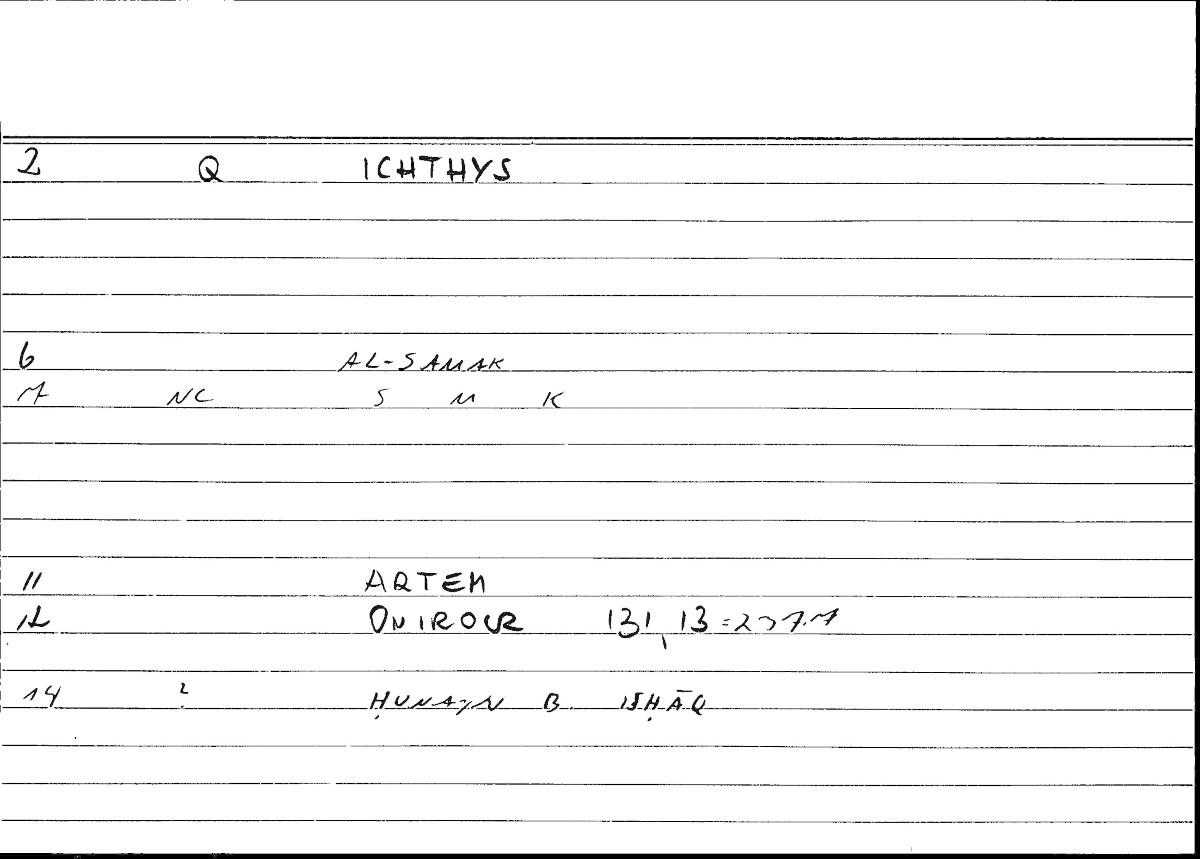 2 Q ICHTHYS
6 AL-SAMAK
7 NC S M K
11 ARTEM
12 ONIROCR 131,13 = 237.7
14 ? ḤUNAYN B. ISḤĀQ